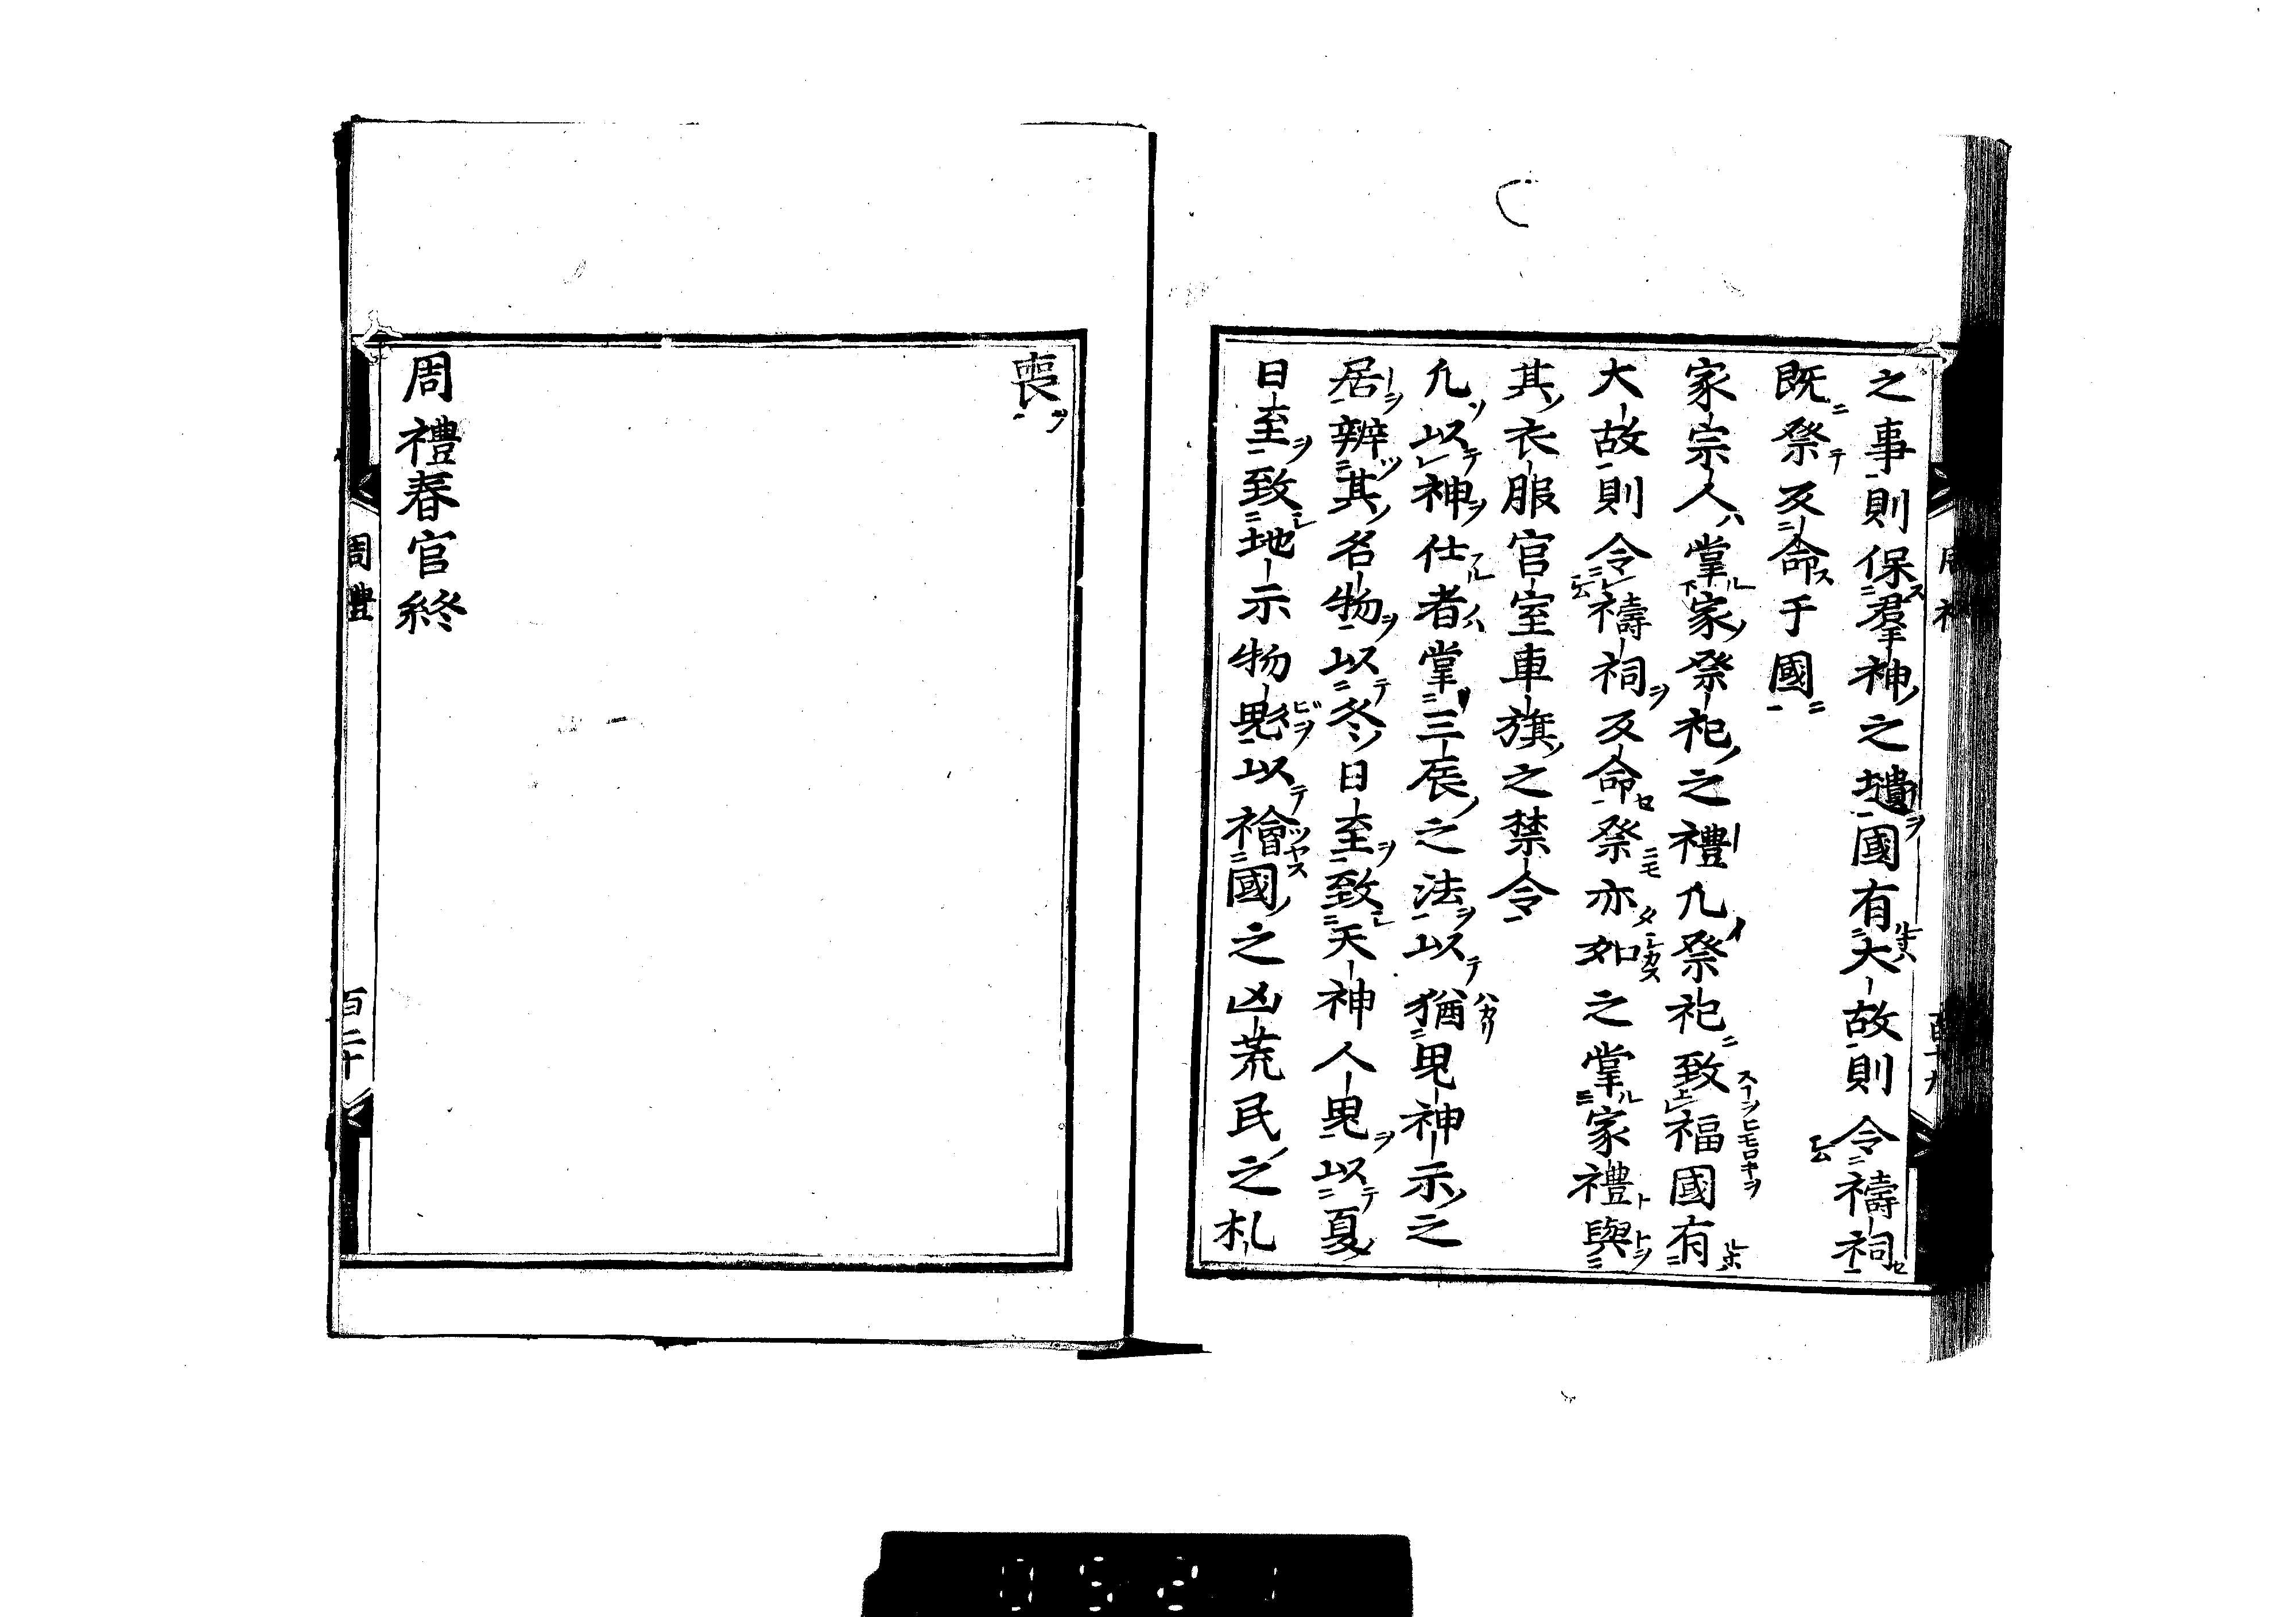 之事則保羣神之壝國有大故則令禱祠
既祭反命于國
家宗人掌家祭祀之禮凢祭祀致福國有
大故則令禱祠反命祭亦如之掌家禮與
其衣服宮室車旗之禁令
凢以神仕者掌三辰之法以猶鬼神示之
居辨其名物以冬日至致天神人鬼以夏
日至致地示物鬽以禬國之凶荒民之札
喪
周禮春官終
周禮
百二十